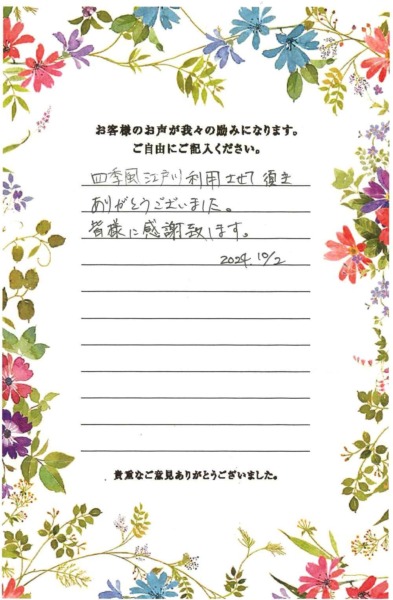 お客様のお声が我々の励みになります。
ご自由にご記入ください。
四季風江戸川利用させて頂き
ありがとうございました。
皆様に感謝致します。
2024. 10/2
貴重なご意見ありがとうございました。